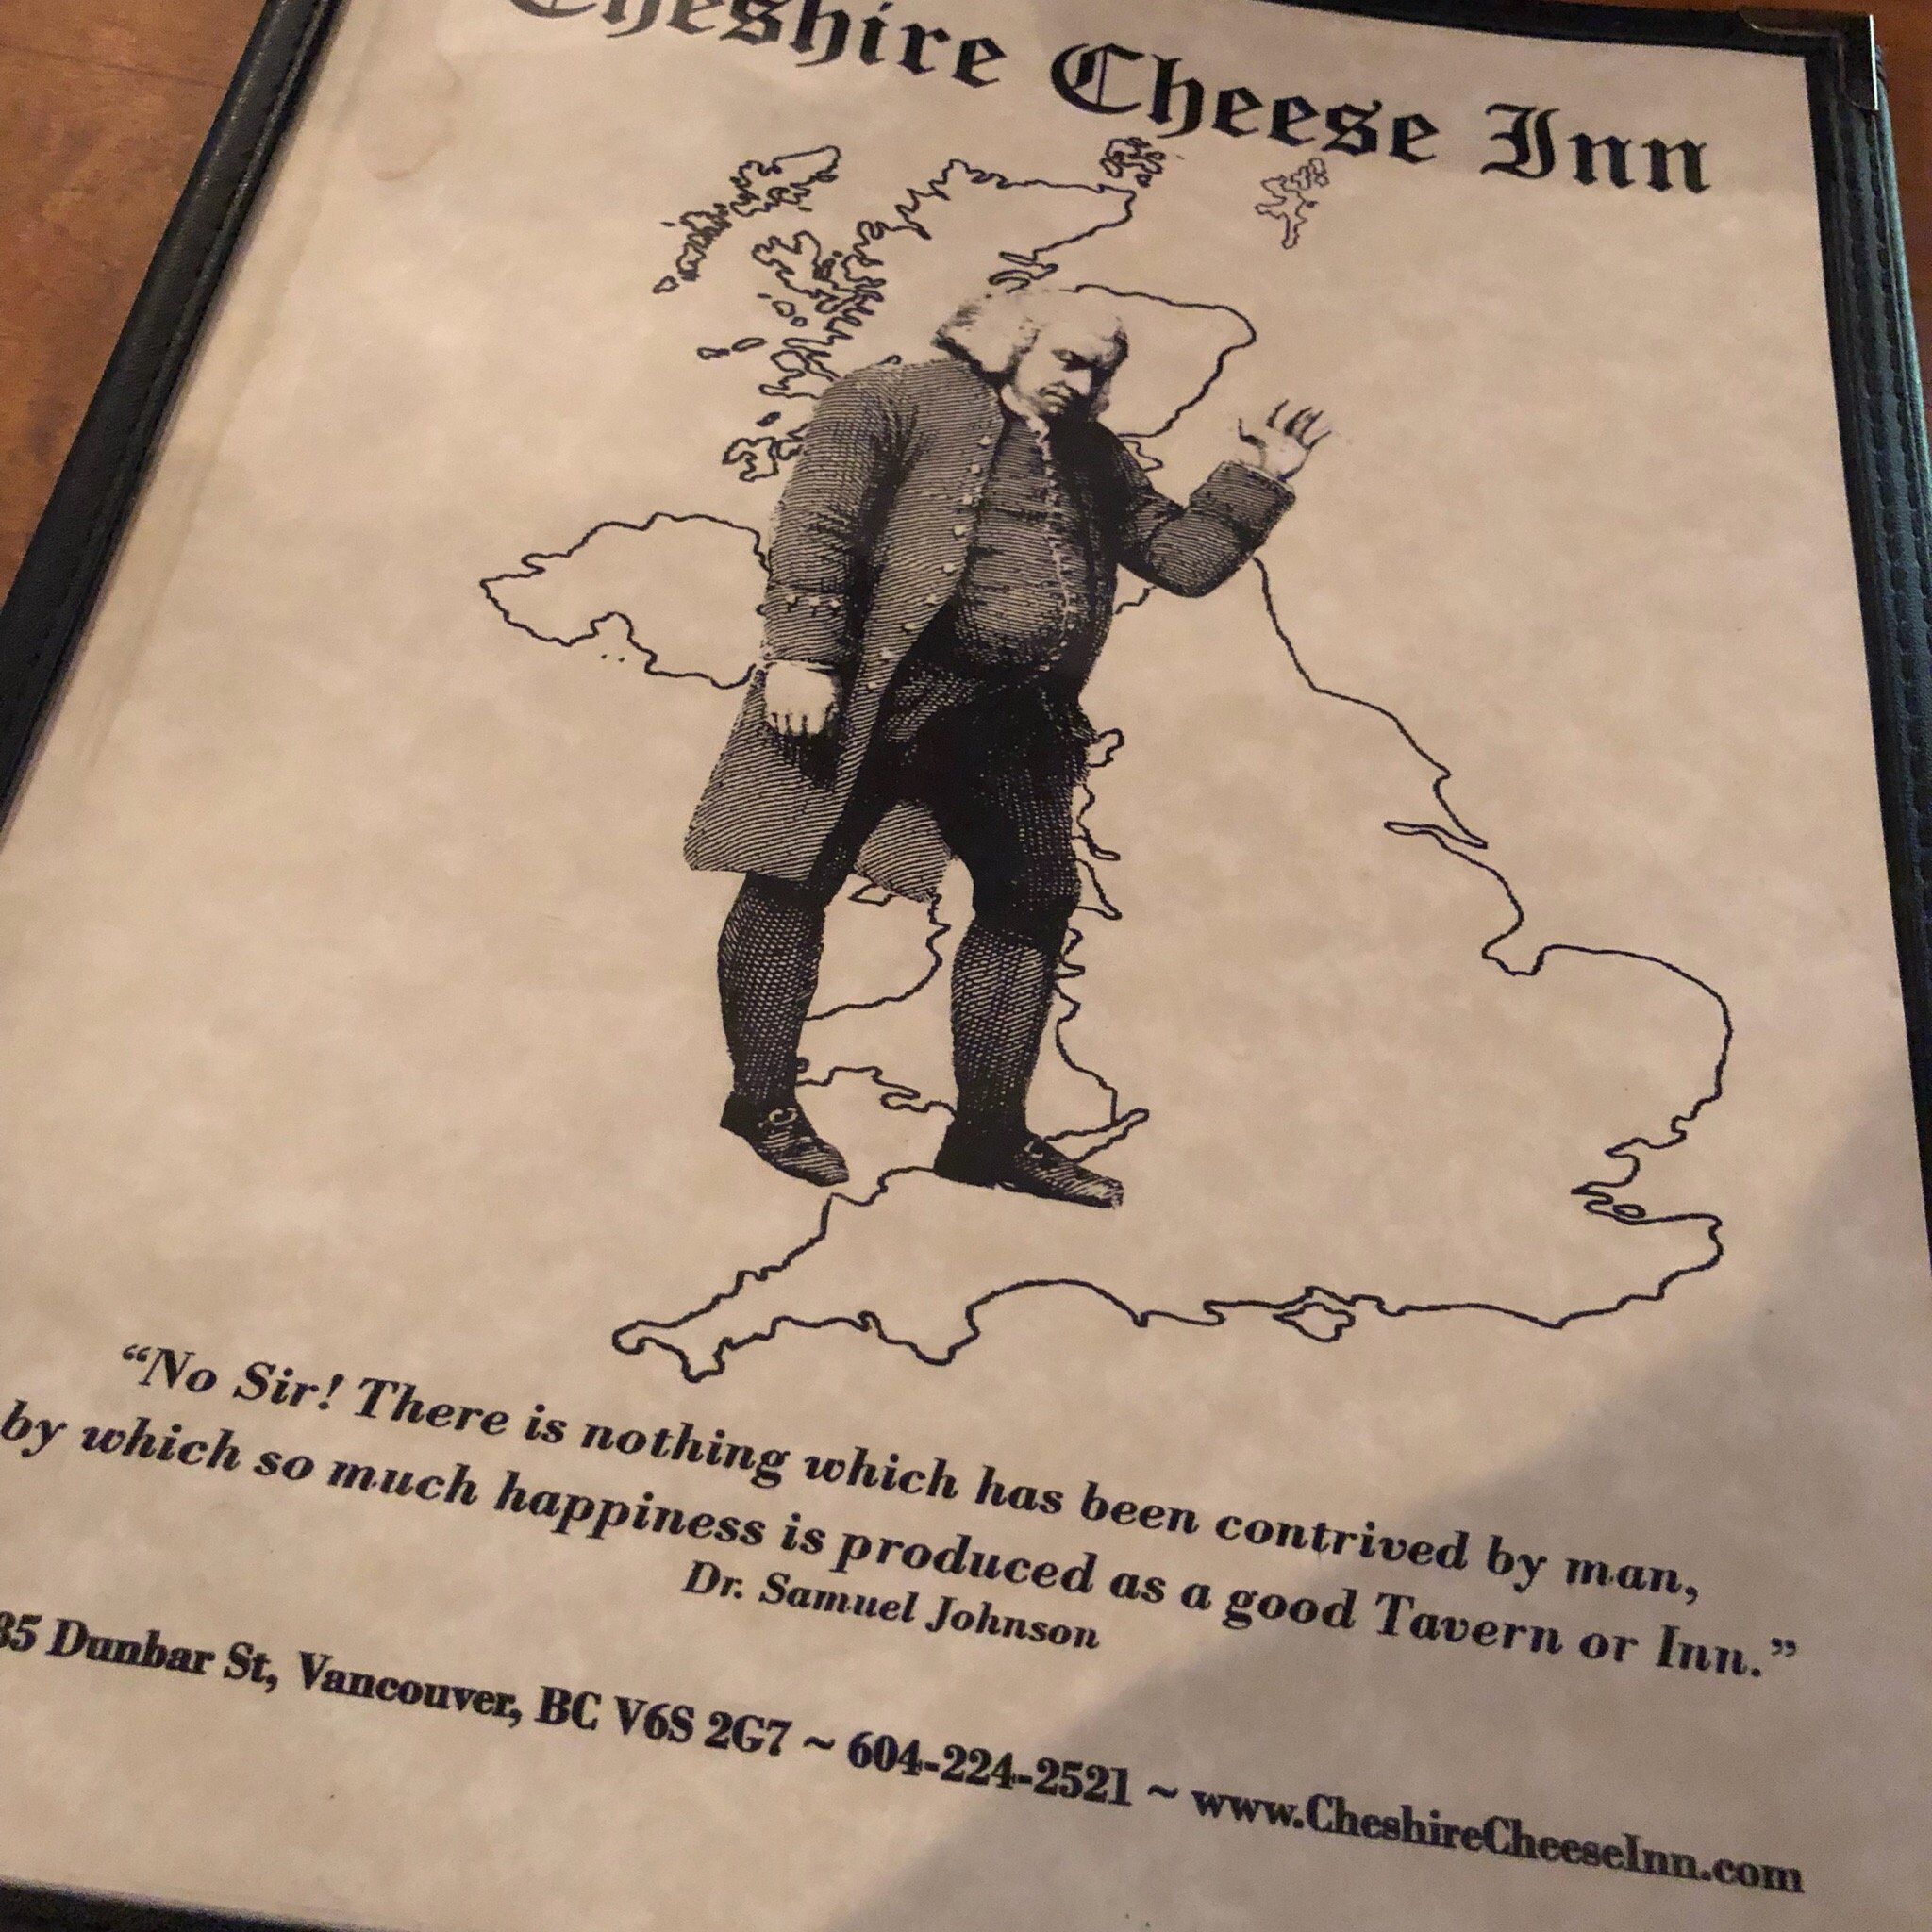 Cheshire Cheese Inn
“No Sir! There is nothing which has been contrived by man,
by which so much happiness is produced as a good Tavern or Inn.”
Dr. Samuel Johnson
35 Dunbar St, Vancouver, BC V6S 2G7 ~ 604-224-2521 ~ www.CheshireCheeseInn.com